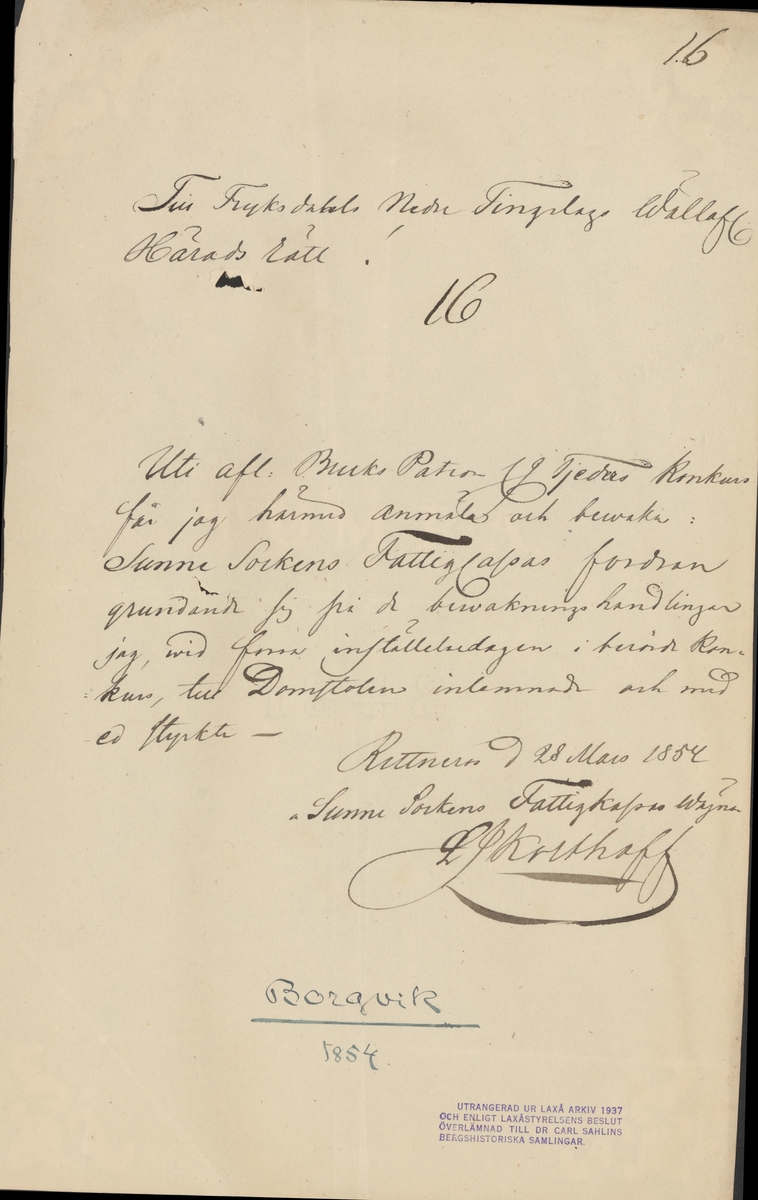 16
Till Fryksdahls Nedre Tingslags Wällofl
Härads Rätt !
16
Uti afl: Bruks Patron Tjeders Konkurs
får jag härmed anmäla och bewaka :
Sunne Sockens Fattig Cassas fordran
grundande sig på de bewakningshandlingar
jag, wid förra inställelsedagen i berörde kon-
kurs, till Domstolen inlemnade och med
ed styrkte —
Rottneros d 28 Mars 1854
Sunne Sockens Fattigkassas wägnar
Kolthoff
Borgvik
1854.
UTRANGERAD UR LAXÅ ARKIV 1937
OCH ENLIGT LAXÅSTYRELSENS BESLUT
ÖVERLÄMNAD TILL DR CARL SAHLINS
BERGSHISTORISKA SAMLINGAR.